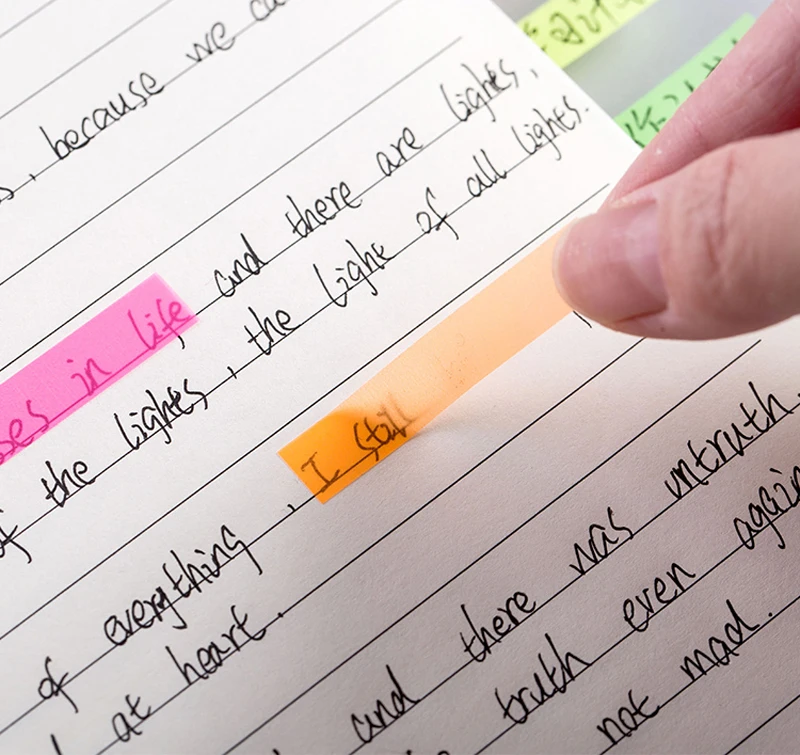 , because we
and there are lights,
in life
of the lights, the light of all lights.
of everything, I still
at heart.
and there was untruth
truth even again
not mad.